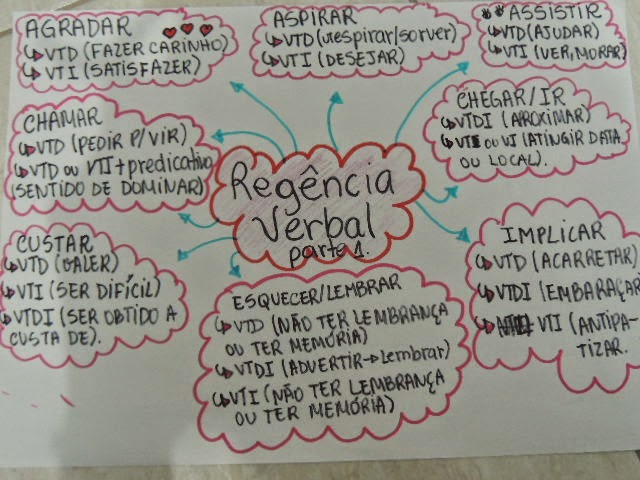 AGRADAR
↳VTD (FAZER CARINHO)
↳VTI (SATISFAZER)
ASPIRAR
↳VTD (respirar/sorver)
↳VTI (DESEJAR)
ASSISTIR
↳VTD (AJUDAR)
↳VTI (VER, MORAR)
CHAMAR
↳VTD (PEDIR P/ VIR)
↳VTD ou VTI + predicativo
(SENTIDO DE DOMINAR)
CHEGAR/IR
↳VTDI (APROXIMAR)
↳VTI OU VI (ATINGIR DATA
OU LOCAL).
Regência
Verbal
parte 1.
CUSTAR
↳VTD (VALER)
↳VTI (SER DIFÍCIL)
↳VTDI (SER OBTIDO A
CUSTA DE).
ESQUECER/LEMBRAR
↳VTD (NÃO TER LEMBRANÇA
OU TER MEMÓRIA)
↳VTDI (ADVERTIR→Lembrar)
↳VTI (NÃO TER LEMBRANÇA
OU TER MEMÓRIA)
IMPLICAR
↳VTD (ACARRETAR)
↳VTDI (EMBARAÇAR
↳ VTI (ANTIPA-
TIZAR.